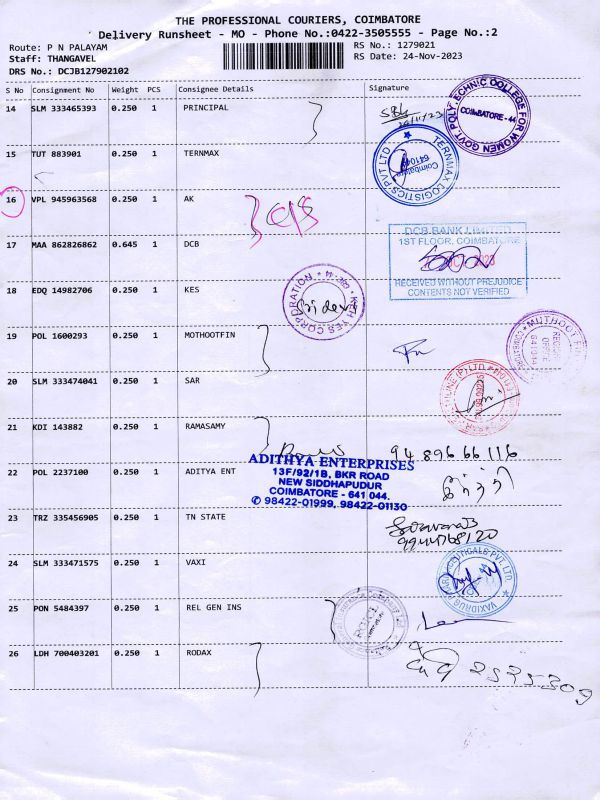 THE PROFESSIONAL COURIERS, COIMBATORE
Delivery Runsheet - MO - Phone No.:0422-3505555 - Page No.:2
Route: P N PALAYAM
RS No.: 1279021
Staff: THANGAVEL
RS Date: 24-Nov-2023
DRS No.: DCJB127902102
S No Consignment No Weight PCS Consignee Details Signature
14 SLM 333465393 0.250 1 PRINCIPAL
GOVT POLYTECHNIC COLLEGE FOR WOMEN
COIMBATORE - 44
15 TUT 883901 0.250 1 TERNMAX
TERNMAX LOGISTICS PVT LTD
Coimbatore
16 VPL 945963568 0.250 1 AK
17 MAA 862826862 0.645 1 DCB
DCB BANK LIMITED
1ST FLOOR, COIMBATORE
RECEIVED WITHOUT PREJUDICE
CONTENTS NOT VERIFIED
18 EDQ 14982706 0.250 1 KES
19 POL 1600293 0.250 1 MOTHOOTFIN
20 SLM 333474041 0.250 1 SAR
21 KDI 143882 0.250 1 RAMASAMY
94 896 66 116
22 POL 2237100 0.250 1 ADITYA ENT
ADITHYA ENTERPRISES
13F/92/1B, BKR ROAD
NEW SIDDHAPUDUR
COIMBATORE - 641 044.
✆ 98422-01999, 98422-01130
23 TRZ 335456905 0.250 1 TN STATE
24 SLM 333471575 0.250 1 VAXI
25 PON 5484397 0.250 1 REL GEN INS
26 LDH 700403201 0.250 1 RODAX
2525309